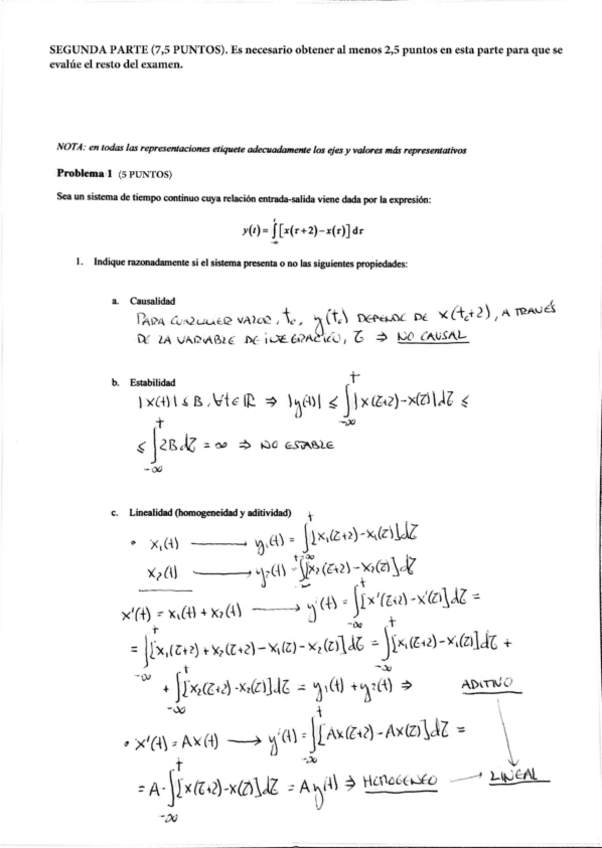 SEGUNDA PARTE (7,5 PUNTOS). Es necesario obtener al menos 2,5 puntos en esta parte para que se
evalúe el resto del examen.
NOTA: en todas las representaciones etiquete adecuadamente los ejes y valores más representativos
Problema 1 (5 PUNTOS)
Sea un sistema de tiempo continuo cuya relación entrada-salida viene dada por la expresión:
y(t) = ∫_{-∞}^{t} [x(τ+2) − x(τ)] dτ
1. Indique razonadamente si el sistema presenta o no las siguientes propiedades:
a. Causalidad
PARA CUALQUIER VALOR, t₀, y(t₀) DEPENDE DE x(t₀+2), A TRAVÉS
DE LA VARIABLE DE INTEGRACIÓN, τ ⇒ NO CAUSAL
b. Estabilidad
|x(t)| ≤ B, ∀t∈ℝ ⇒ |y(t)| ≤ ∫_{-∞}^{t} |x(τ+2)−x(τ)|dτ ≤
≤ ∫_{-∞}^{t} 2B dτ = ∞ ⇒ NO ESTABLE
c. Linealidad (homogeneidad y aditividad)
• x₁(t) ⟶ y₁(t) = ∫_{-∞}^{t} [x₁(τ+2)−x₁(τ)]dτ
x₂(t) ⟶ y₂(t) = ∫_{-∞}^{t} [x₂(τ+2)−x₂(τ)]dτ
x'(t) = x₁(t) + x₂(t) ⟶ y'(t) = ∫_{-∞}^{t} [x'(τ+2)−x'(τ)]dτ =
= ∫_{-∞}^{t} [x₁(τ+2)+x₂(τ+2)−x₁(τ)−x₂(τ)]dτ = ∫_{-∞}^{t} [x₁(τ+2)−x₁(τ)]dτ +
+ ∫_{-∞}^{t} [x₂(τ+2)−x₂(τ)]dτ = y₁(t) + y₂(t) ⇒ ADITIVO
• x'(t) = Ax(t) ⟶ y'(t) = ∫_{-∞}^{t} [Ax(τ+2)−Ax(τ)]dτ =
= A· ∫_{-∞}^{t} [x(τ+2)−x(τ)]dτ = Ay(t) ⇒ HOMOGENEO ⟶ LINEAL